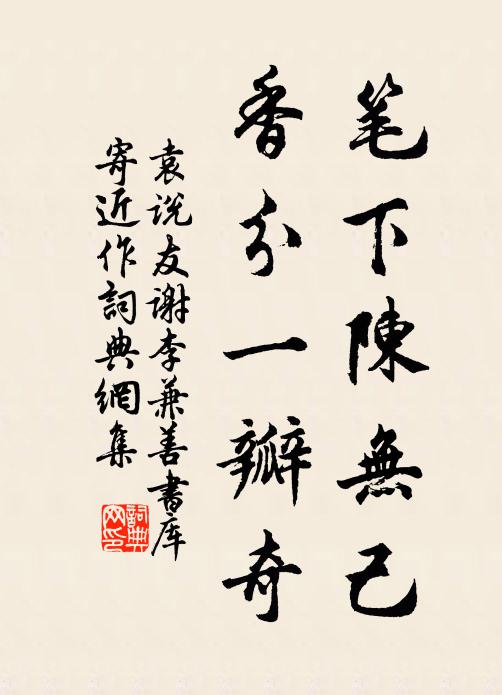 笔下陳無己
香分一瓣奇
袁说友谢李兼善書库
寄近作詞典網集
詞典網印